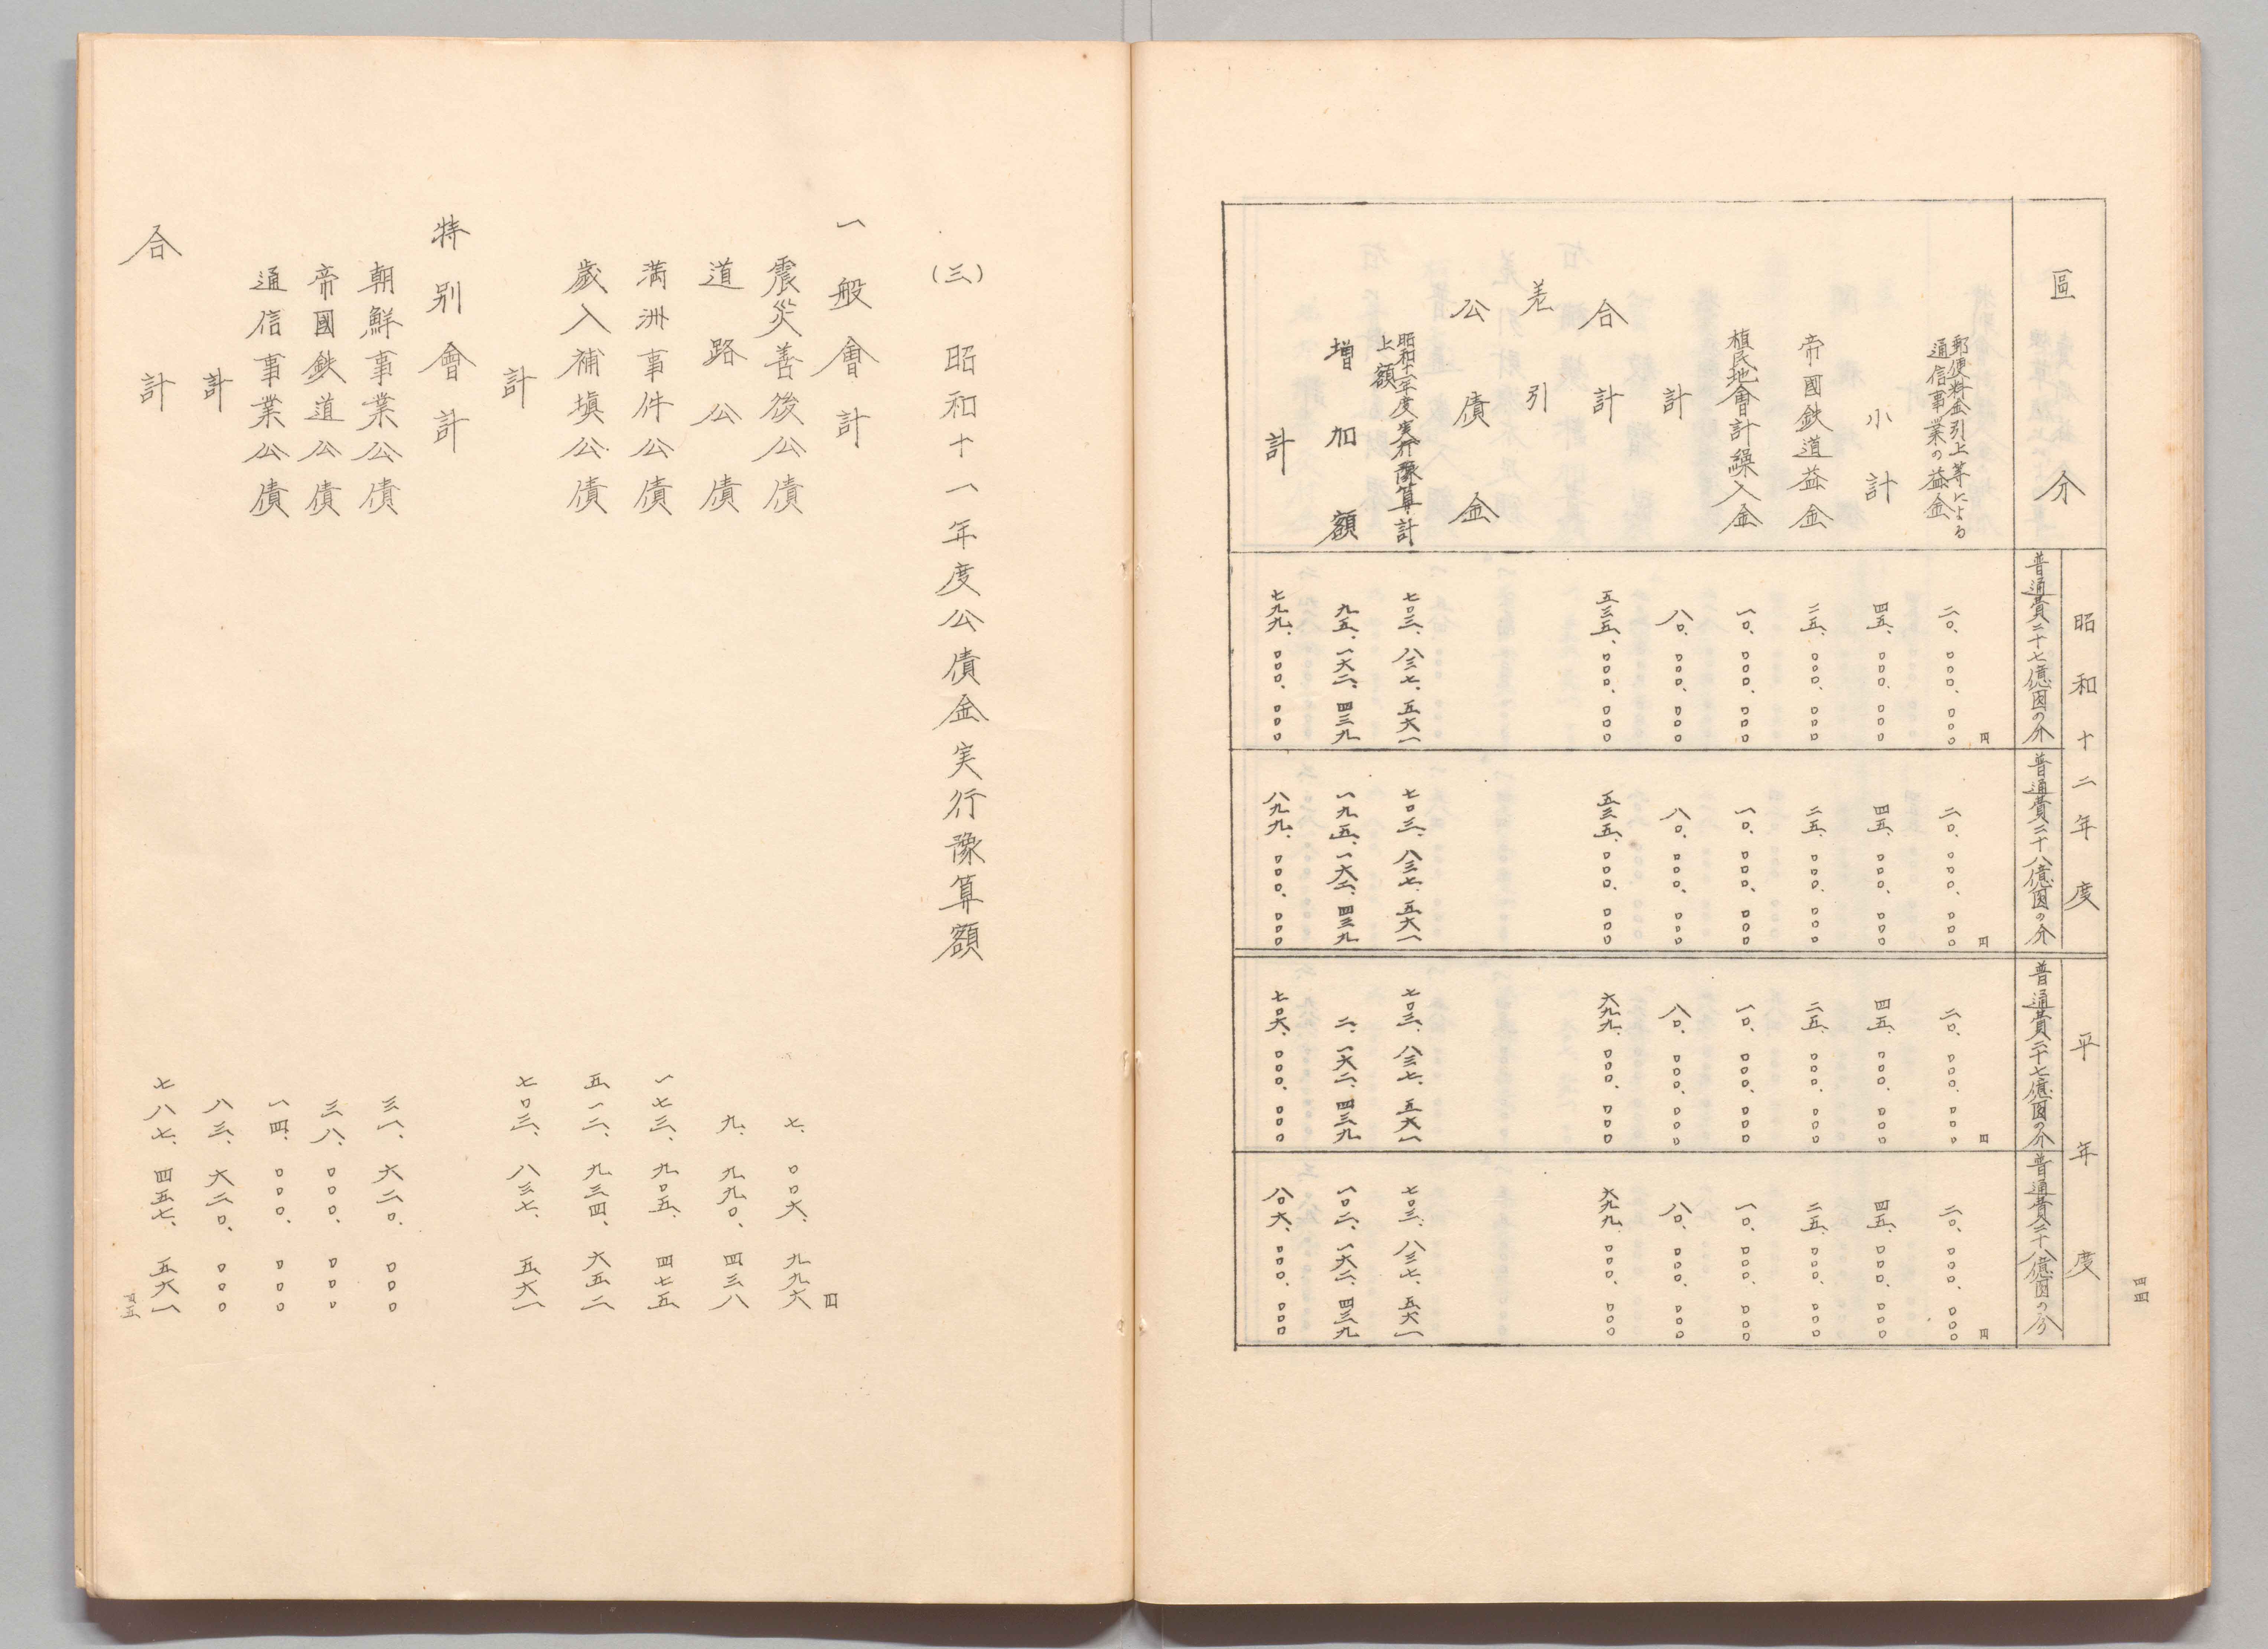 四四
區分
昭和十二年度
平年度
普通費二十七億圓の分
普通費二十八億圓の分
普通費二十七億圓の分
普通費二十八億圓の分
円 円 円 円
郵便料金引上等による
通信事業の益金
二〇、〇〇〇、〇〇〇 二〇、〇〇〇、〇〇〇 二〇、〇〇〇、〇〇〇 二〇、〇〇〇、〇〇〇
小計 四五、〇〇〇、〇〇〇 四五、〇〇〇、〇〇〇 四五、〇〇〇、〇〇〇 四五、〇〇〇、〇〇〇
帝國鉄道益金 二五、〇〇〇、〇〇〇 二五、〇〇〇、〇〇〇 二五、〇〇〇、〇〇〇 二五、〇〇〇、〇〇〇
植民地會計繰入金 一〇、〇〇〇、〇〇〇 一〇、〇〇〇、〇〇〇 一〇、〇〇〇、〇〇〇 一〇、〇〇〇、〇〇〇
計 八〇、〇〇〇、〇〇〇 八〇、〇〇〇、〇〇〇 八〇、〇〇〇、〇〇〇 八〇、〇〇〇、〇〇〇
合計 五三五、〇〇〇、〇〇〇 五三五、〇〇〇、〇〇〇 六九九、〇〇〇、〇〇〇 六九九、〇〇〇、〇〇〇
差引
公債金
昭和十一年度実行豫算計
上額
七〇三、八三七、五六一 七〇三、八三七、五六一 七〇三、八三七、五六一 七〇三、八三七、五六一
増加額 九五、一六二、四三九 一九五、一六二、四三九 二、一六二、四三九 一〇二、一六二、四三九
計 七九九、〇〇〇、〇〇〇 八九九、〇〇〇、〇〇〇 七〇六、〇〇〇、〇〇〇 八〇六、〇〇〇、〇〇〇
(三) 昭和十一年度公債金実行豫算額
一般會計
円
震災善後公債 七、〇〇六、九九六
道路公債 九、九九〇、四三八
満洲事件公債 一七三、九〇五、四七五
歳入補塡公債 五一二、九三四、六五二
計 七〇三、八三七、五六一
特別會計
朝鮮事業公債 三一、六二〇、〇〇〇
帝國鉄道公債 三八、〇〇〇、〇〇〇
通信事業公債 一四、〇〇〇、〇〇〇
計 八三、六二〇、〇〇〇
合計 七八七、四五七、五六一
四五